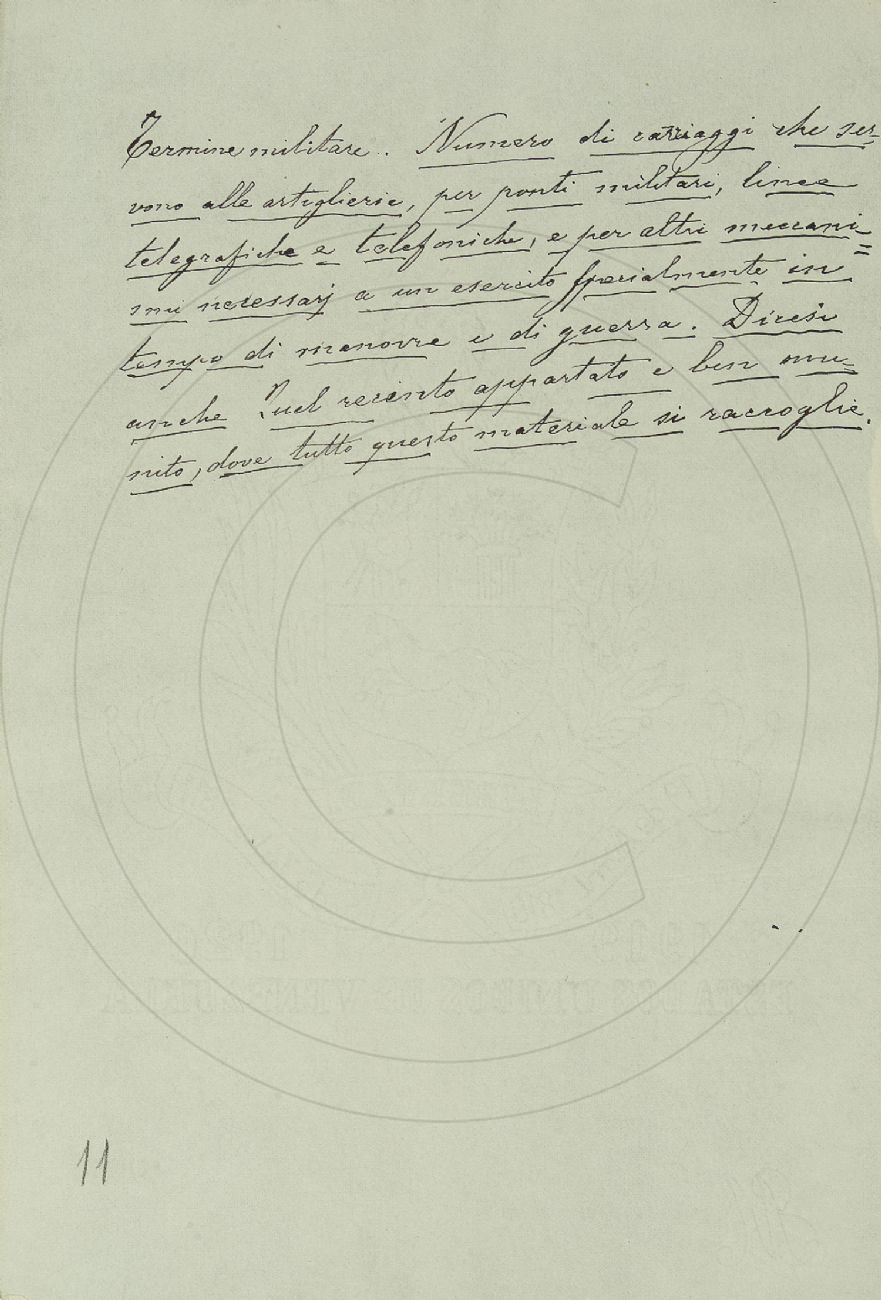 Termine militare. Numero di carriaggi che ser-
vono alle artiglierie, per ponti militari, linee
telegrafiche e telefoniche, e per altri meccani=
smi necessarj a un esercito specialmente in
tempo di manovre e di guerra. Dicesi
anche Quel recinto appartato e ben mu=
nito, dove tutto questo materiale si raccoglie.
11